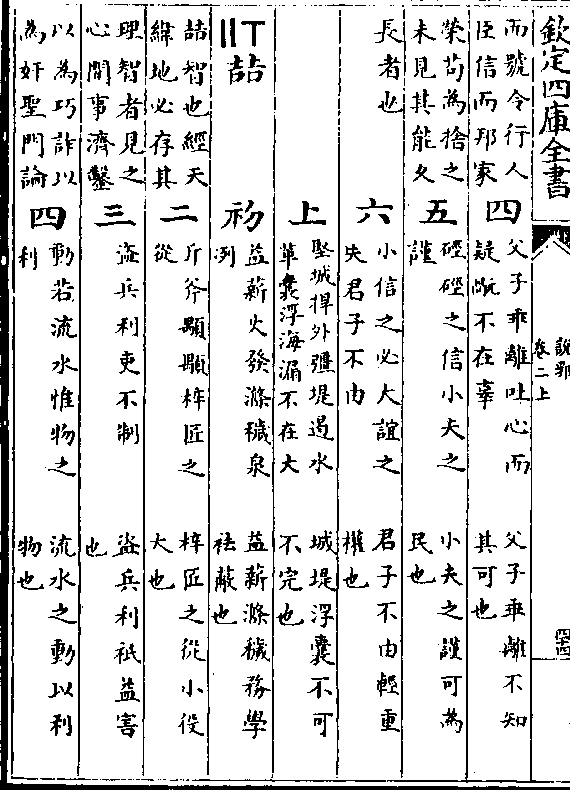 欽定四庫全書
說郛
卷二上
四十四
而號令行人
臣信而邦家
四
父子乖離吐心而
疑厥不在辜
父子乖離不知
其可也
榮苟為捨之
未見其能久
五
硜硜之信小夫之
謹
小夫之謹可為
民也
長者也
六
小信之必大誼之
失君子不由
君子不由輕重
權也
上
堅城捍外彊堤遏水
革囊浮海漏不在大
城堤浮囊不可
不完也
丅〢喆
初
益薪火發滌穢泉
冽
益薪滌穢務學
祛蔽也
喆智也經天
緯地必存其
二
斤斧顒顒梓匠之
從
梓匠之從小役
大也
理智者見之
心間事濟鑿
三
盜兵利吏不制
盜兵利祇益害
也
以為巧詐以
為奸聖門論
四
動若流水惟物之
利
流水之動以利
物也